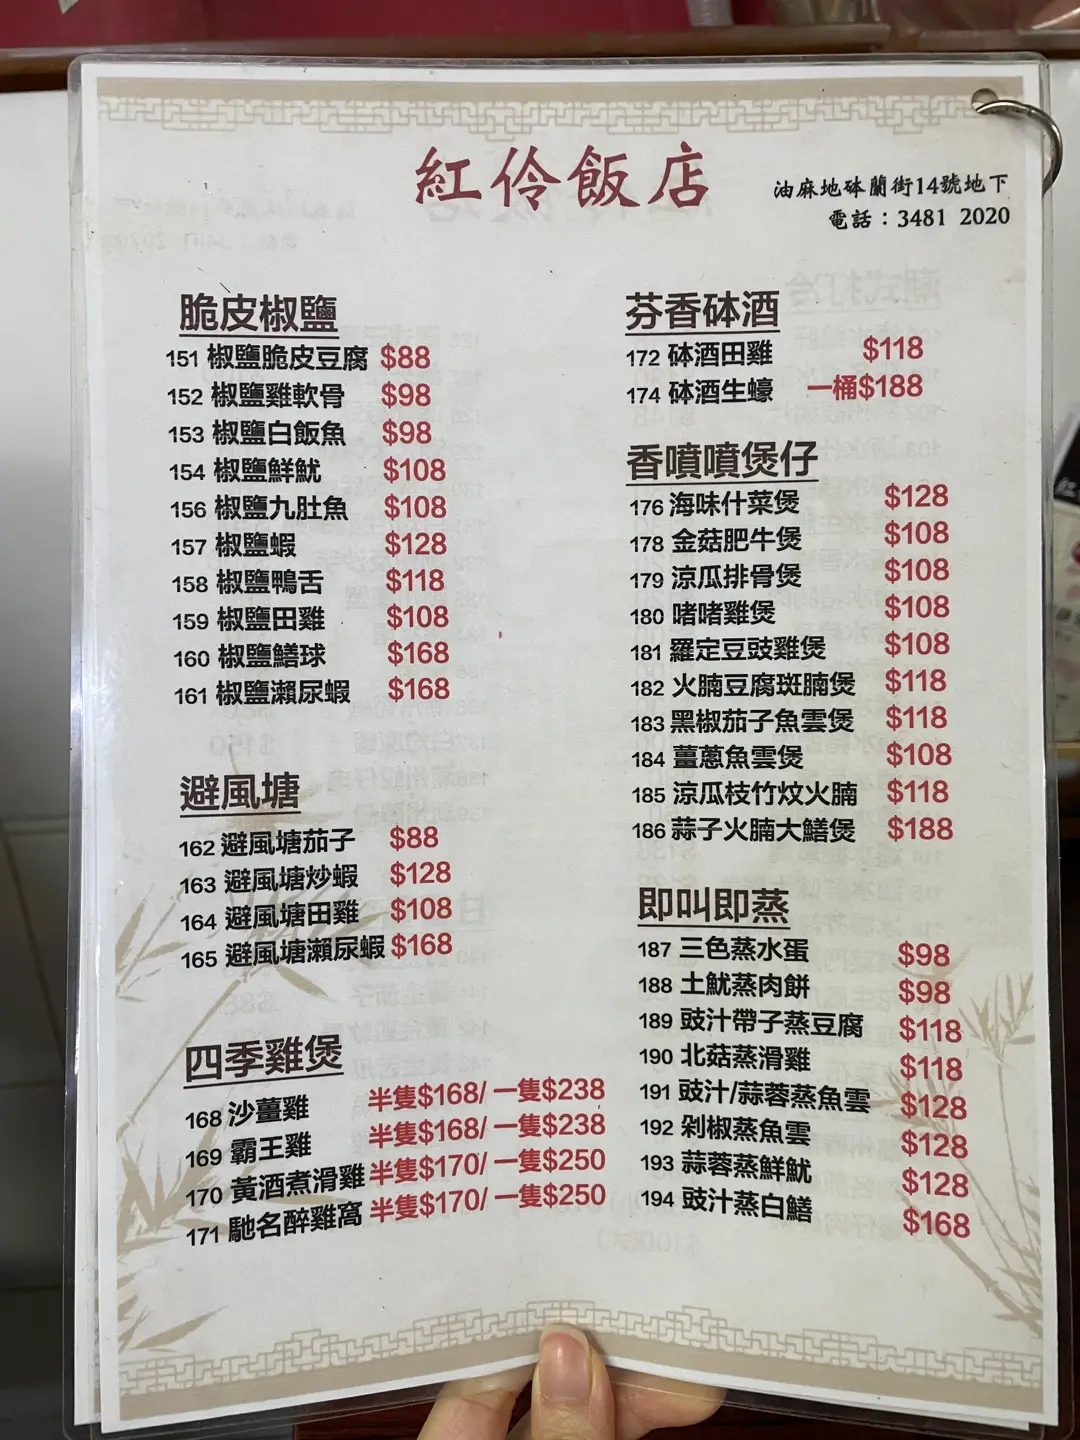 紅伶飯店
油麻地砵蘭街14號地下
電話：3481 2020
脆皮椒鹽
151 椒鹽脆皮豆腐 $88
152 椒鹽雞軟骨 $98
153 椒鹽白飯魚 $98
154 椒鹽鮮魷 $108
156 椒鹽九肚魚 $108
157 椒鹽蝦 $128
158 椒鹽鴨舌 $118
159 椒鹽田雞 $108
160 椒鹽鱔球 $168
161 椒鹽瀨尿蝦 $168
避風塘
162 避風塘茄子 $88
163 避風塘炒蝦 $128
164 避風塘田雞 $108
165 避風塘瀨尿蝦 $168
四季雞煲
168 沙薑雞 半隻$168/ 一隻$238
169 霸王雞 半隻$168/ 一隻$238
170 黃酒煮滑雞 半隻$170/ 一隻$250
171 馳名醉雞窩 半隻$170/ 一隻$250
芬香砵酒
172 砵酒田雞 $118
174 砵酒生蠔 一桶$188
香噴噴煲仔
176 海味什菜煲 $128
178 金菇肥牛煲 $108
179 涼瓜排骨煲 $108
180 啫啫雞煲 $108
181 羅定豆豉雞煲 $108
182 火腩豆腐斑腩煲 $118
183 黑椒茄子魚雲煲 $118
184 薑蔥魚雲煲 $108
185 涼瓜枝竹炆火腩 $118
186 蒜子火腩大鱔煲 $188
即叫即蒸
187 三色蒸水蛋 $98
188 土魷蒸肉餅 $98
189 豉汁帶子蒸豆腐 $118
190 北菇蒸滑雞 $118
191 豉汁/蒜蓉蒸魚雲 $128
192 剁椒蒸魚雲 $128
193 蒜蓉蒸鮮魷 $128
194 豉汁蒸白鱔 $168